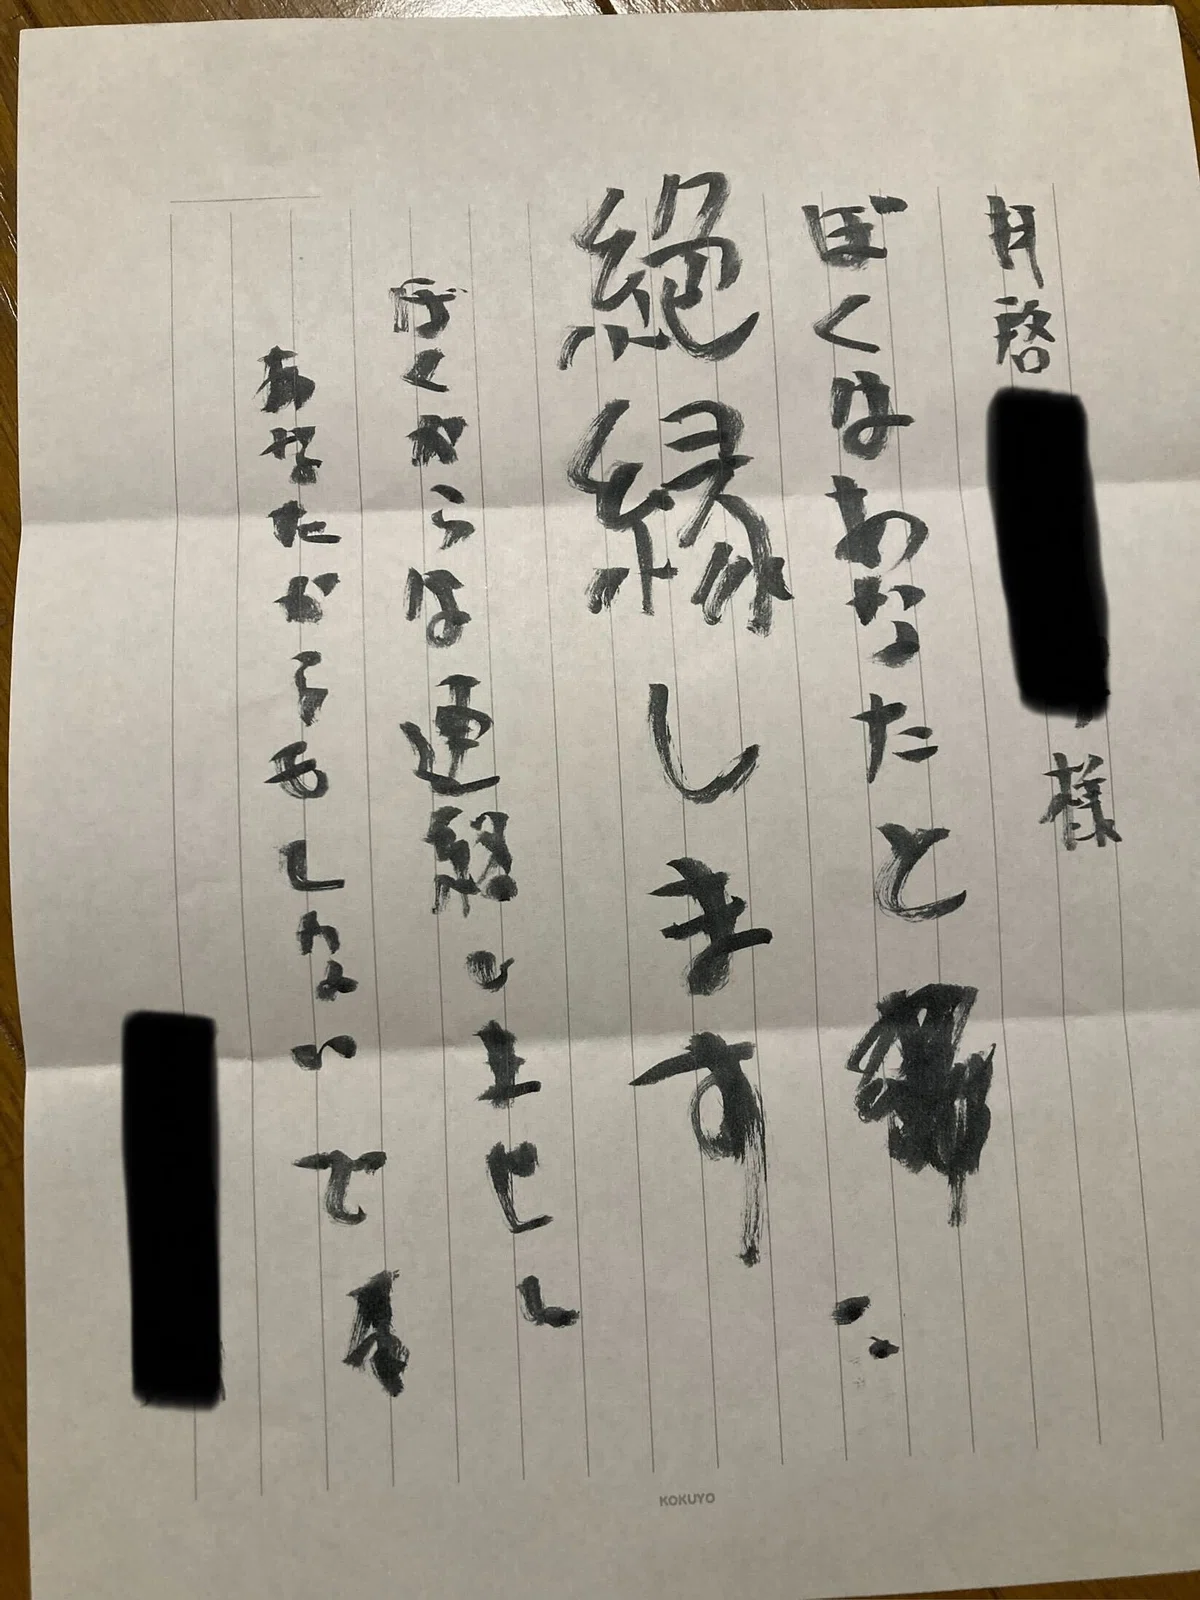 拝啓
様
ぼくはあなたと
絶縁します
ぼくからは連絡しません
あなたからもしないで
KOKUYO